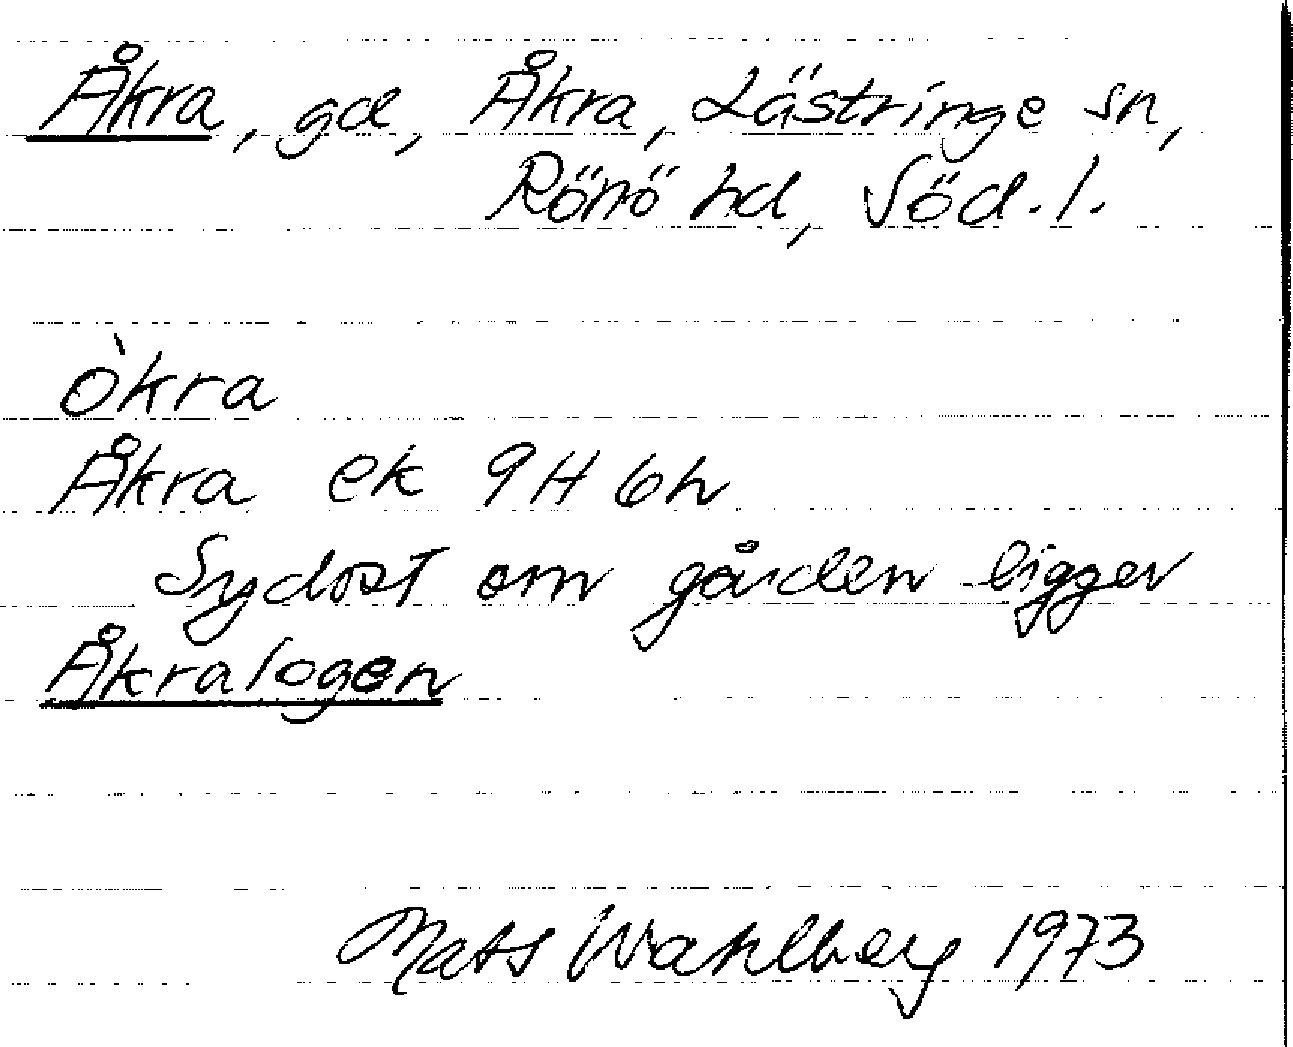 Åkra, gd, Åkra, Lästringe sn,
Rönö hd, Söd. l.
òkra
Åkra ek 9H 6h
Sydost om gården ligger
Åkralogen
Mats Wahlberg 1973